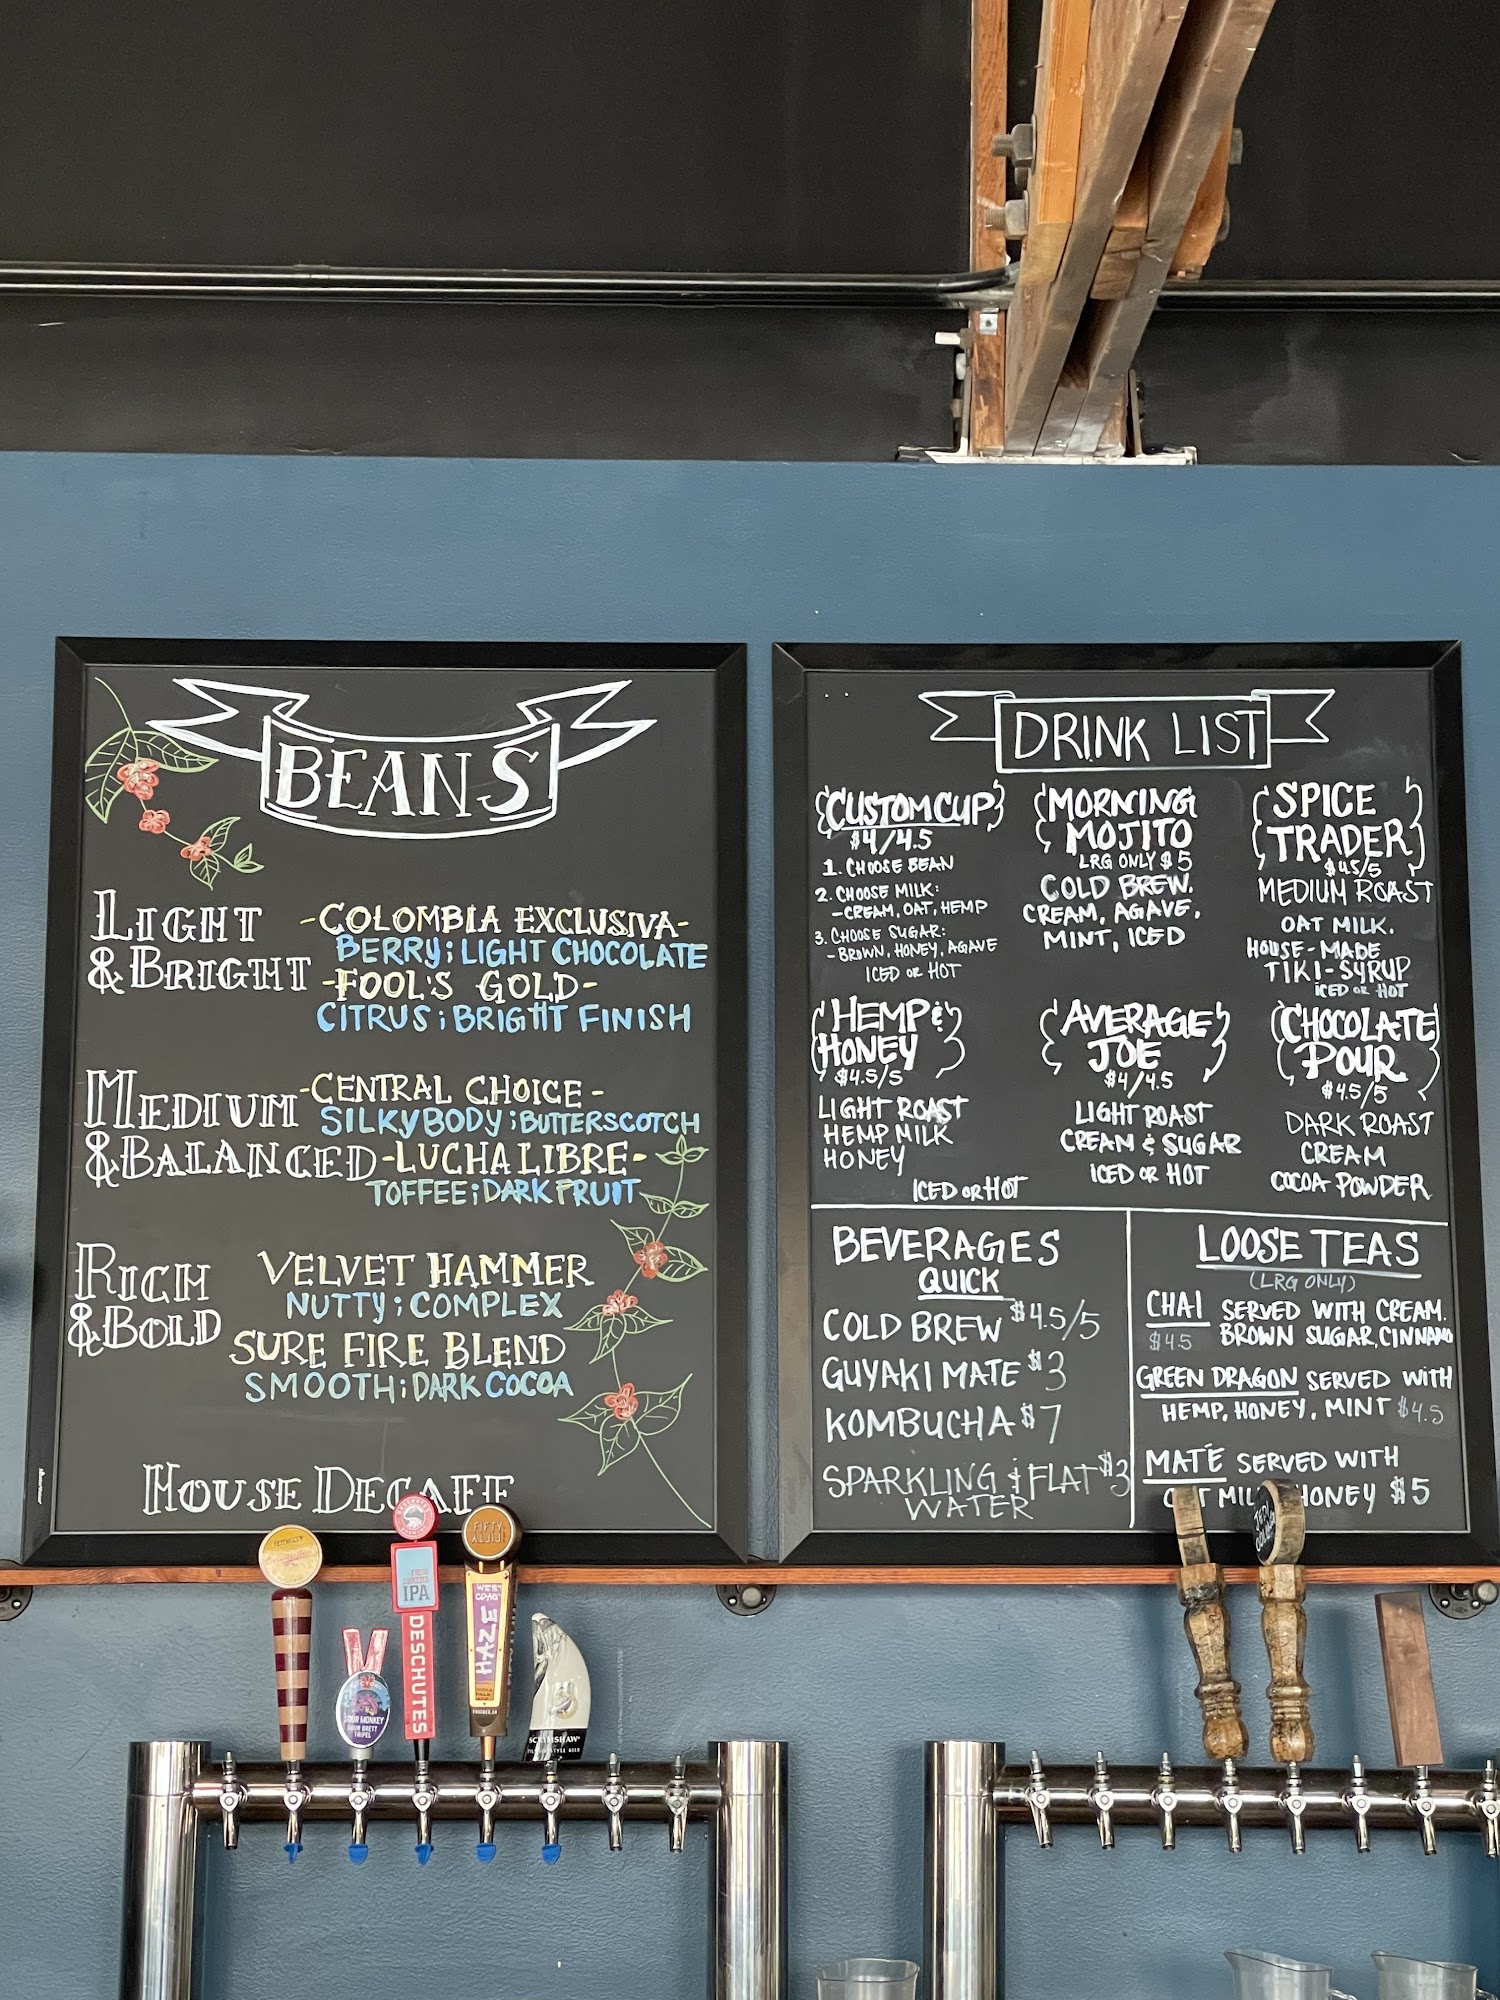 BEANS
LIGHT
& BRIGHT
-COLOMBIA EXCLUSIVA-
BERRY; LIGHT CHOCOLATE
-FOOL'S GOLD-
CITRUS; BRIGHT FINISH
MEDIUM
& BALANCED
-CENTRAL CHOICE-
SILKY BODY; BUTTERSCOTCH
-LUCHA LIBRE-
TOFFEE; DARK FRUIT
RICH
& BOLD
VELVET HAMMER
NUTTY; COMPLEX
SURE FIRE BLEND
SMOOTH; DARK COCOA
HOUSE DECAFF
DRINK LIST
CUSTOM CUP
$4/4.5
1. CHOOSE BEAN
2. CHOOSE MILK:
-CREAM, OAT, HEMP
3. CHOOSE SUGAR:
-BROWN, HONEY, AGAVE
ICED OR HOT
MORNING
MOJITO
LRG ONLY $5
COLD BREW.
CREAM, AGAVE,
MINT, ICED
SPICE
TRADER
$4.5/5
MEDIUM ROAST
OAT MILK.
HOUSE-MADE
TIKI-SYRUP
ICED OR HOT
HEMP &
HONEY
$4.5/5
LIGHT ROAST
HEMP MILK
HONEY
ICED OR HOT
AVERAGE
JOE
$4/4.5
LIGHT ROAST
CREAM & SUGAR
ICED OR HOT
CHOCOLATE
POUR
$4.5/5
DARK ROAST
CREAM
COCOA POWDER
BEVERAGES
QUICK
COLD BREW $4.5/5
GUYAKI MATE $3
KOMBUCHA $7
SPARKLING & FLAT $3
WATER
LOOSE TEAS
(LRG ONLY)
CHAI SERVED WITH CREAM.
$4.5 BROWN SUGAR, CINNAMO
GREEN DRAGON SERVED WITH
HEMP, HONEY, MINT $4.5
MATÉ SERVED WITH
OAT MILK HONEY $5
IPA
DESCHUTES
FIFTY
WEST
COAST
HAZE
SOUR MONKEY
SOUR BRETT
TRIPEL
SCRIMSHAW